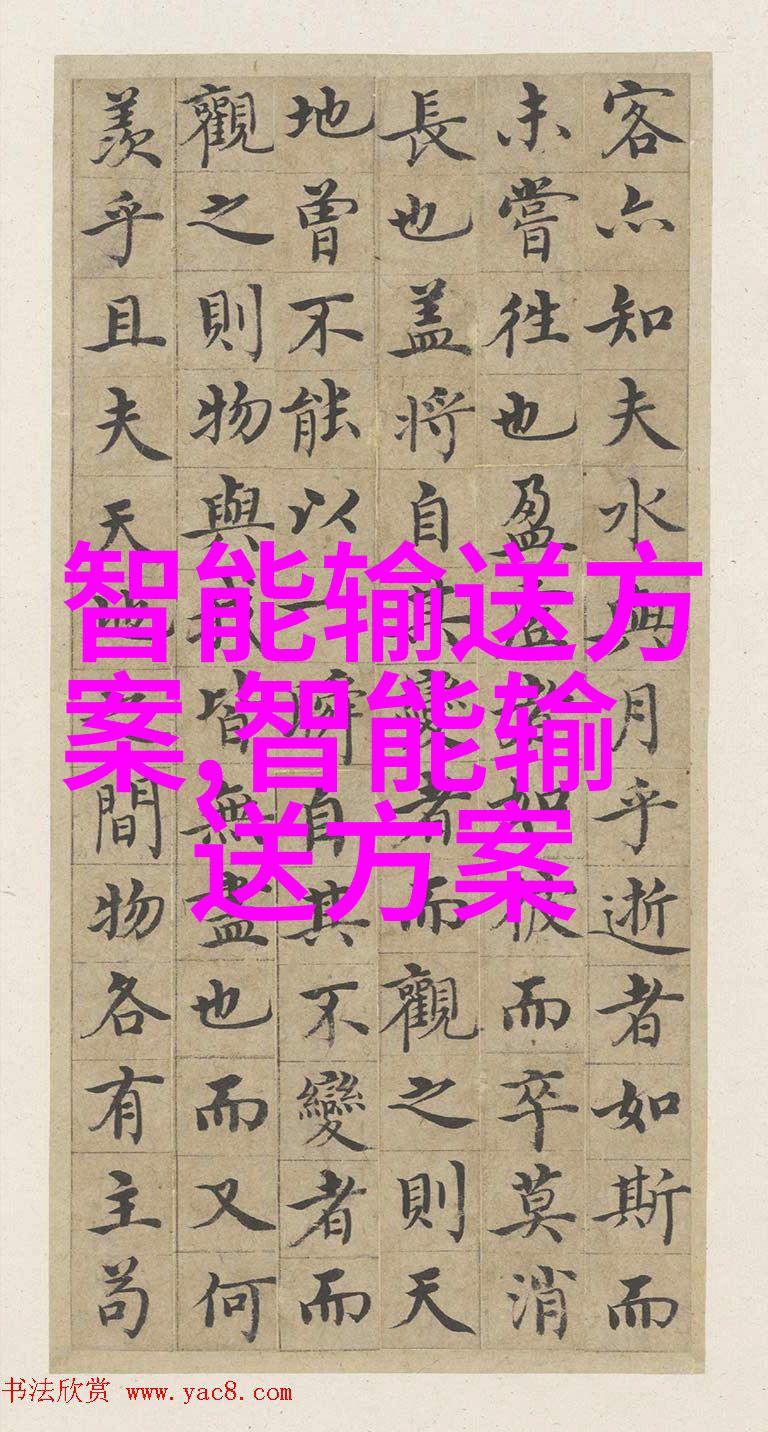 客亦知夫水與月乎逝者如斯而
未嘗徃也盈虛者如彼而卒莫消
長也盖將自其變者而觀之則天
地曾不能以一瞬自其不變者而
觀之則物與我皆無盡也而又何
羨乎且夫天地之間物各有主苟
智能输送方
案,智能输
送方案
书法欣赏 www.yac8.com